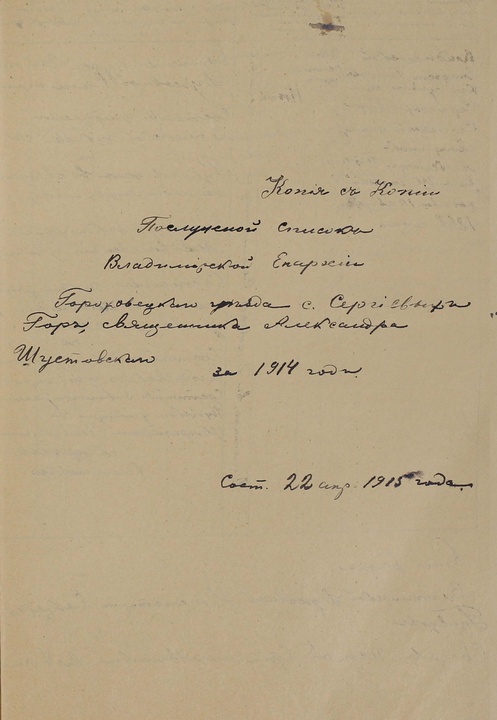 Копія съ Копіи
Послужной списокъ
Владимірской Епархіи
Гороховецкаго уѣзда с. Сергіевыхъ
Горъ, священника Александра
Шустовскаго
за 1914 годъ.
Сост. 22 апр. 1915 года.